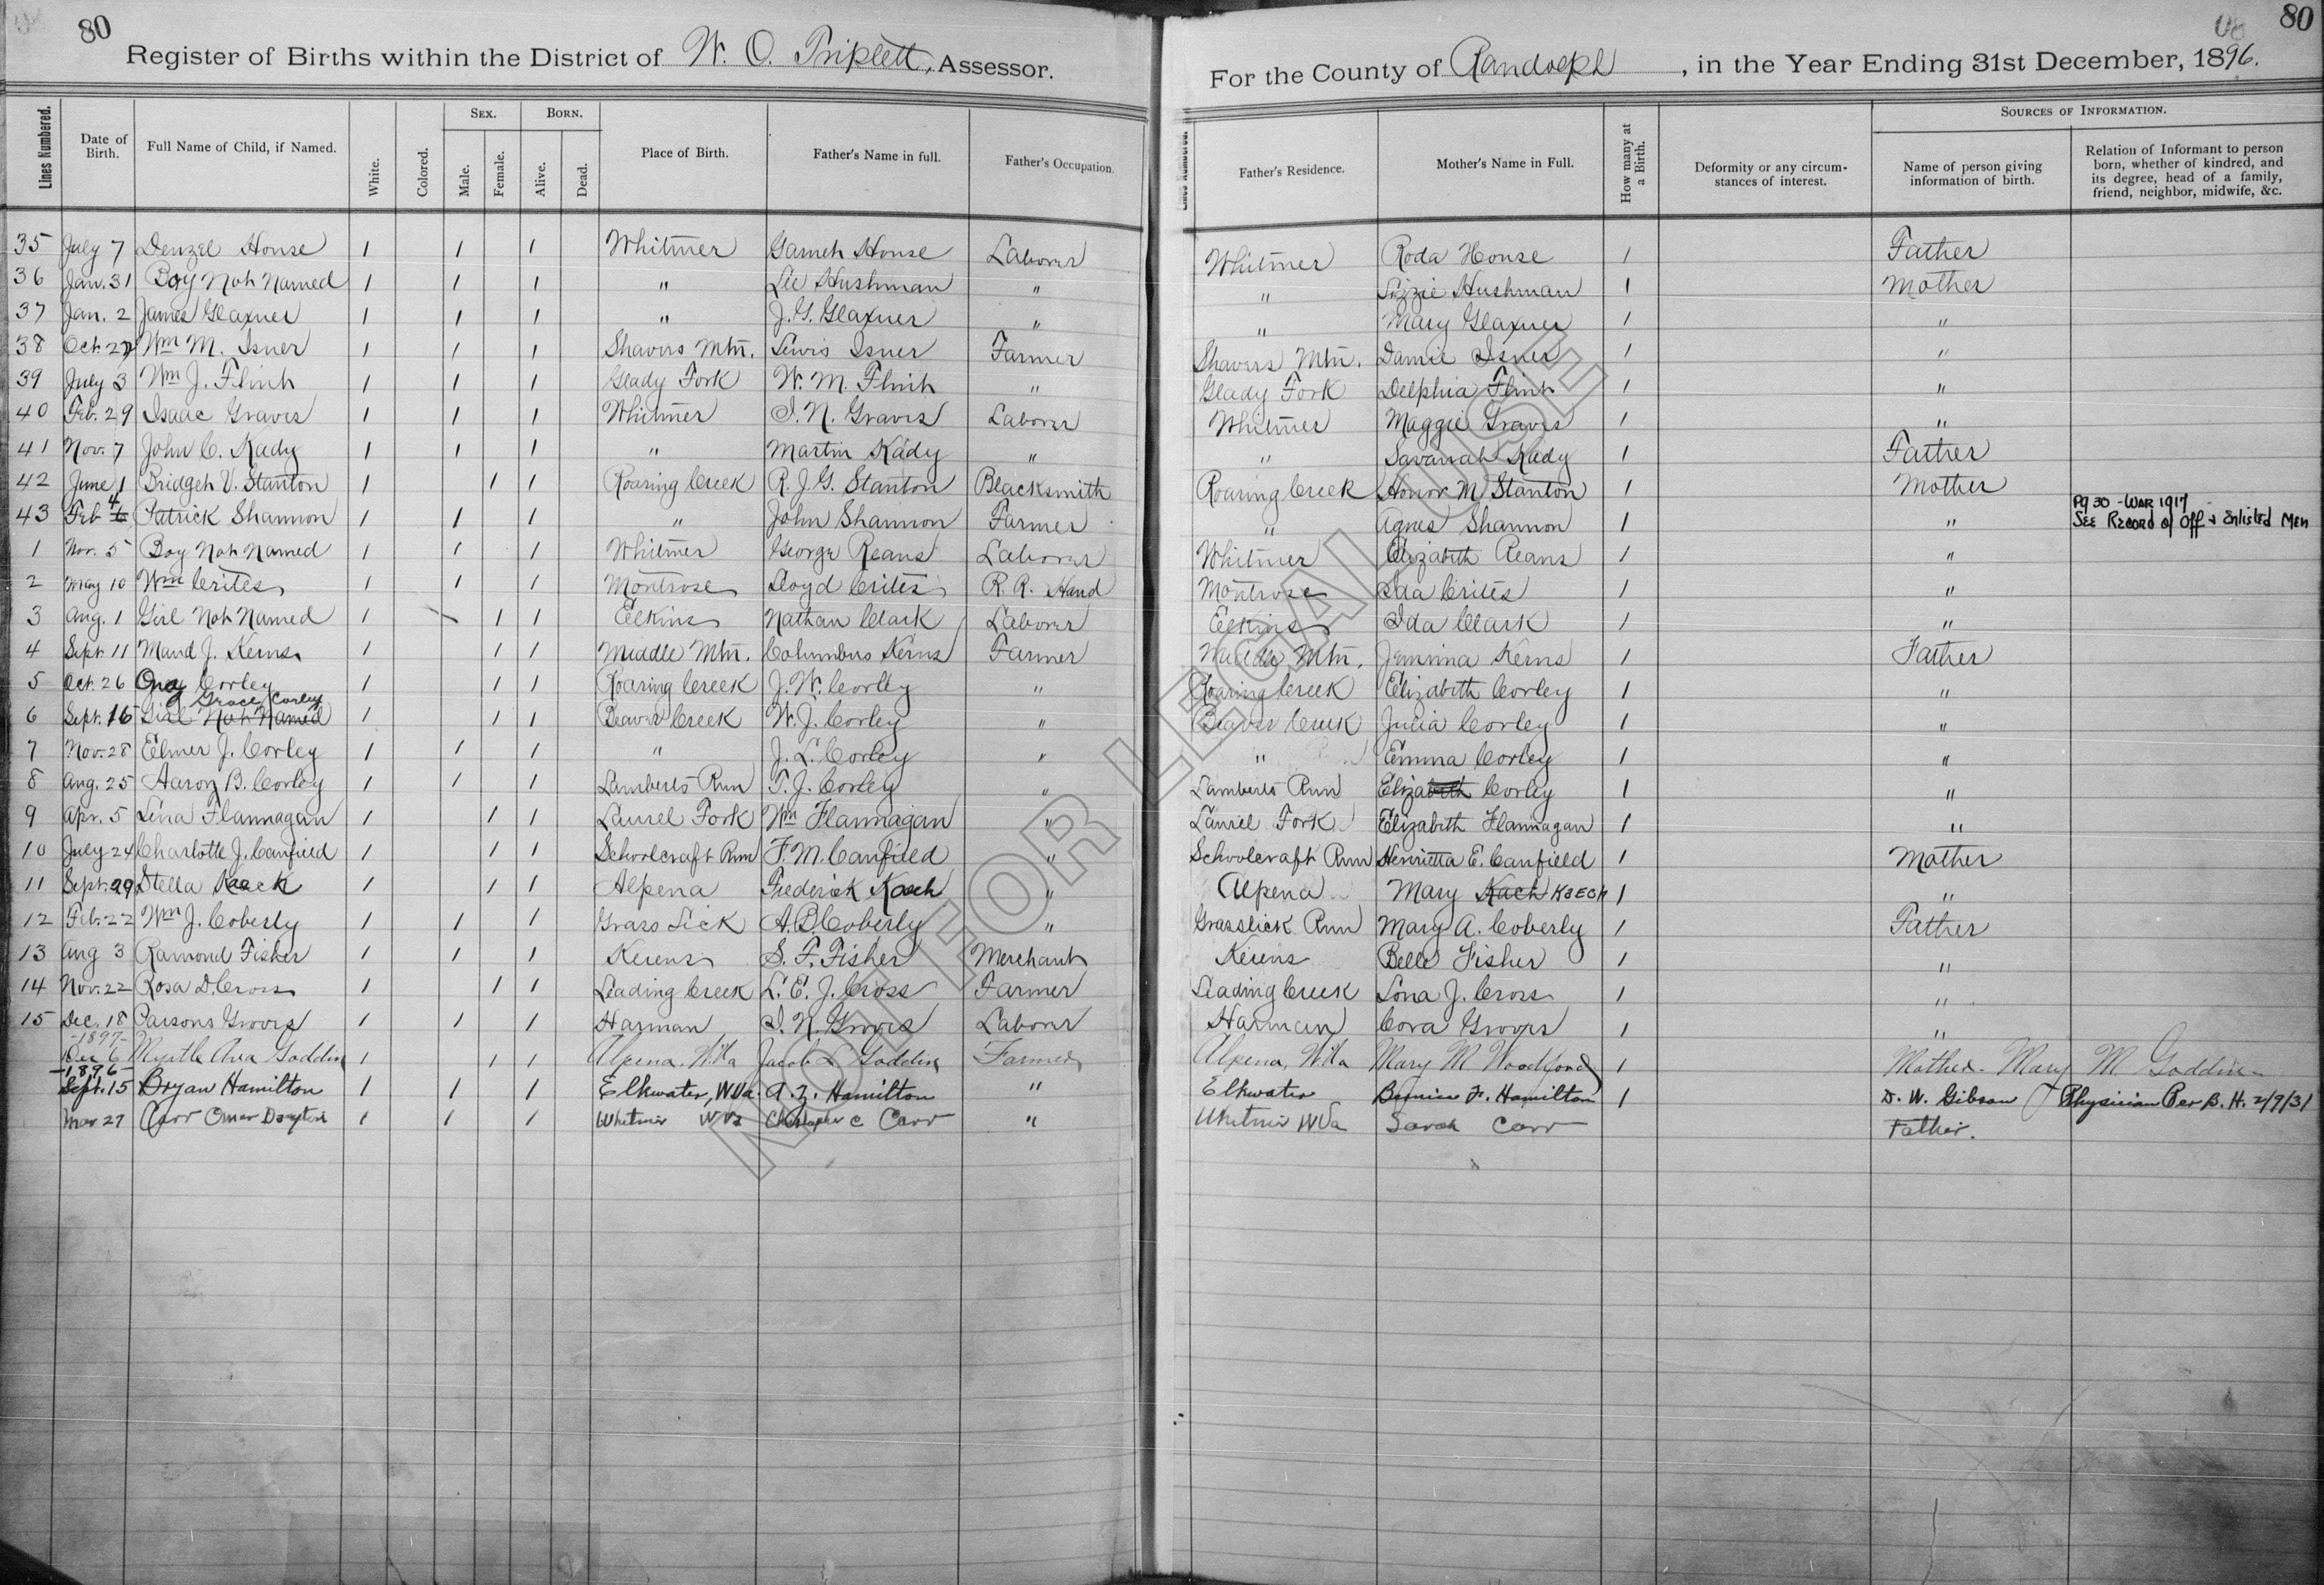 80
Register of Births within the District of W. O. Triplett, Assessor.
For the County of Randolph, in the Year Ending 31st December, 1896.
80
Lines Numbered. Date of Birth. Full Name of Child, if Named. White. Colored. Sex. Male. Female. Born. Alive. Dead. Place of Birth. Father's Name in full. Father's Occupation. Father's Residence. Mother's Name in Full. How many at a Birth. Deformity or any circumstances of interest. Sources of Information. Name of person giving information of birth. Relation of Informant to person born, whether of kindred, and its degree, head of a family, friend, neighbor, midwife, &c.
35 July 7 Denzel House 1 1 1 Whitmer Garneh House Laborer Whitmer Roda House 1 Father
36 Jan. 31 Boy Not Named 1 1 1 " Lee Hushman " " Lizzie Hushman 1 Mother
37 Jan. 2 James Glaxner 1 1 1 " J. G. Glaxner " " Mary Glaxner 1 "
38 Oct. 22 Wm M. Isner 1 1 1 Shavers Mtn. Lewis Isner Farmer Shavers Mtn. Damie Isner 1 "
39 July 3 Wm J. Flint 1 1 1 Glady Fork W. M. Flint " Glady Fork Delphia Flint 1 "
40 Feb. 29 Isaac Graves 1 1 1 Whitmer I. N. Graves Laborer Whitmer Maggie Graves 1 "
41 Nov. 7 John C. Kady 1 1 1 " Martin Kady " " Savanah Kady 1 Father
42 June 1 Bridget V. Stanton 1 1 1 Roaring Creek R. J. G. Stanton Blacksmith Roaring Creek Honor M Stanton 1 Mother
43 Feb 4 Patrick Shannon 1 1 1 " John Shannon Farmer " Agnes Shannon 1 " Pg 30 - War 1917 See Record of Off & Enlisted Men
1 Nov. 5 Boy Not Named 1 1 1 Whitmer George Reans Laborer Whitmer Elizabeth Reans 1 "
2 May 10 Wm Crites 1 1 1 Montrose Lloyd Crites R. R. Hand Montrose Ida Crites 1 "
3 Aug. 1 Girl Not Named 1 1 1 Elkins Nathan Clark Laborer Elkins Ida Clark 1 "
4 Sept. 11 Maud J. Kerns 1 1 1 Middle Mtn. Columbus Kerns Farmer Middle Mtn. Jemima Kerns 1 Father
5 Oct. 26 Ona Corley 1 1 1 Roaring Creek J. W. Corley " Roaring Creek Elizabeth Corley 1 "
Grace Corley
6 Sept. 16 Girl Not Named 1 1 1 Beaver Creek W. J. Corley " Beaver Creek Julia Corley 1 "
7 Nov. 28 Elmer J. Corley 1 1 1 " J. L. Corley " " Emma Corley 1 "
8 Aug. 25 Aaron B. Corley 1 1 1 Lamberts Run T. J. Corley " Lamberts Run Elizabeth Corley 1 "
9 Apr. 5 Lina Flannagan 1 1 1 Laurel Fork Wm Flannagan " Laurel Fork Elizabeth Flannagan 1 "
10 July 24 Charlotte J. Canfield 1 1 1 Schoolcraft Run F. M. Canfield " Schoolcraft Run Henrietta E. Canfield 1 Mother
11 Sept. 29 Stella 1 1 1 Alpena Frederick " Alpena Mary Kach 1 "
12 Feb. 22 Wm J. Coberly 1 1 1 Grass Lick A. B. Coberly " Grasslick Run Mary A. Coberly 1 Father
13 Aug 3 Ramond Fisher 1 1 1 Kerens S. F. Fisher Merchant Kerens Belle Fisher 1 "
14 Nov. 22 Rosa D. Cross 1 1 1 Leading Creek L. E. J. Cross Farmer Leading Creek Lona J. Cross 1 "
15 Dec. 18 Parsons Groves 1 1 1 Harman I. N. Groves Laborer Harman Cora Groves 1 "
-1897-
Dec 6 Myrtle Ava Goddin 1 1 1 Alpena, W.Va Jacob L Goddin Farmer Alpena, W.Va Mary M Woodford 1 Mother - Mary M Goddin
-1896-
Sept. 15 Bryan Hamilton 1 1 1 Elkwater, W.Va. A. Z. Hamilton " Elkwater Bernice F. Hamilton 1 D. W. Gibson Physician Per B. H. 2/9/31
Mar 27 Carr Omer Dayton 1 1 1 Whitmer W Va Christopher C Carr " Whitmer W Va Sarah Carr Father.
NOT FOR LEGAL USE